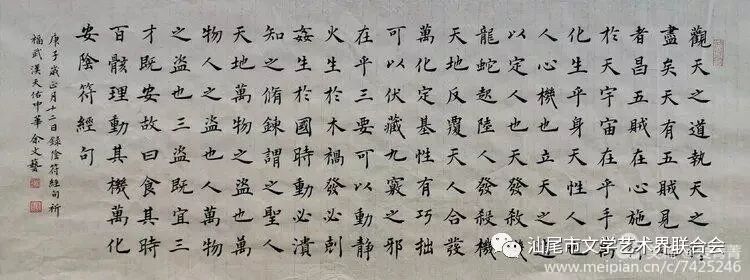 觀天之道執天之
盡矣天有五賊見
者昌五賊在心施
於天宇宙在乎手
化生乎身天性人
人心機也立天之
以定人也天發殺
龍蛇起陸人發殺機
天地反覆天人合發
萬化定基性有巧拙
可以伏藏九竅之邪
在乎三要可以動靜
火生於木禍發必剋
姦生於國時動必潰
知之脩鍊謂之聖人
天地萬物之盜也萬
物人之盜也人萬物
之盜也三盜既宜三
才既安故曰食其時
百骸理動其機萬化
安陰符經句
庚子歲正月十二日錄陰符經句祈
福武漢天佑中華余文藝
汕尾市文学艺术界联合会
www.meipian.cn/c/7425246